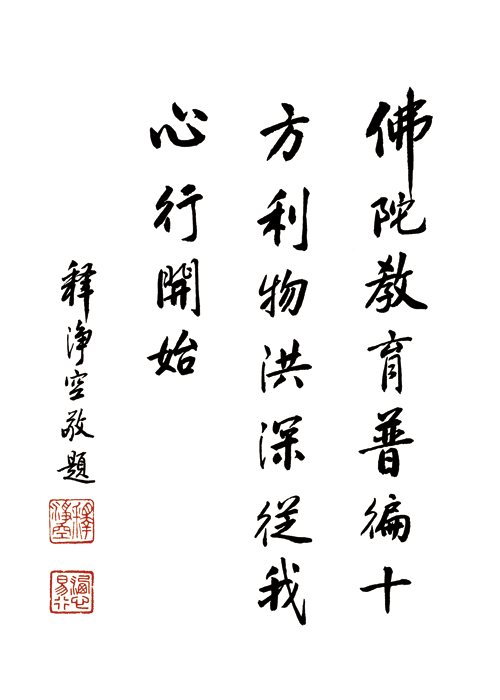 佛陀教育普徧十
方利物洪深從我
心行開始
释淨空敬題
釋淨空